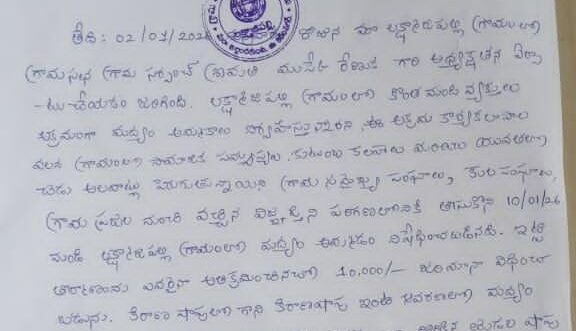 తేది: 02/01/2026 రోజున మా లక్ష్మాజిపల్లి గ్రామంలో
గ్రామసభ గ్రామ సర్పంచ్ శ్రీమతి ముసేర రేణుక గారి అధ్యక్షతన ఏర్పా
-టు చేయడం జరిగింది. లక్ష్మాజిపల్లి గ్రామంలో కొంత మంది వ్యక్తులు
అక్రమంగా మద్యం అమ్మకాలు నిర్వహిస్తున్నారని, ఈ అక్రమ కార్యకలాపాల
వలన గ్రామంలో సామాజిక సమస్యలు, కుటుంబ కలహాలు మరియు యువతలో
చెడు అలవాట్లు పెరుగుతున్నాయని గ్రామ సమైక్య సంఘాలు, కుల సంఘాలు,
గ్రామ ప్రజల నుంచి వచ్చిన విజ్ఞప్తిని పరిగణలోనికి తీసుకొని 10/01/26
నుండి లక్ష్మాజిపల్లి గ్రామంలో మద్యం అమ్మడం నిషేధించబడినది. ఇట్టి
తీర్మాణంను ఎవరైనా అతిక్రమించినచో 10,000/- జరిమానా విధించ
బడును. కిరాణా షాపులో గాని కిరాణషాపు ఇంటి ఆవరణలో మద్యం
షాపు